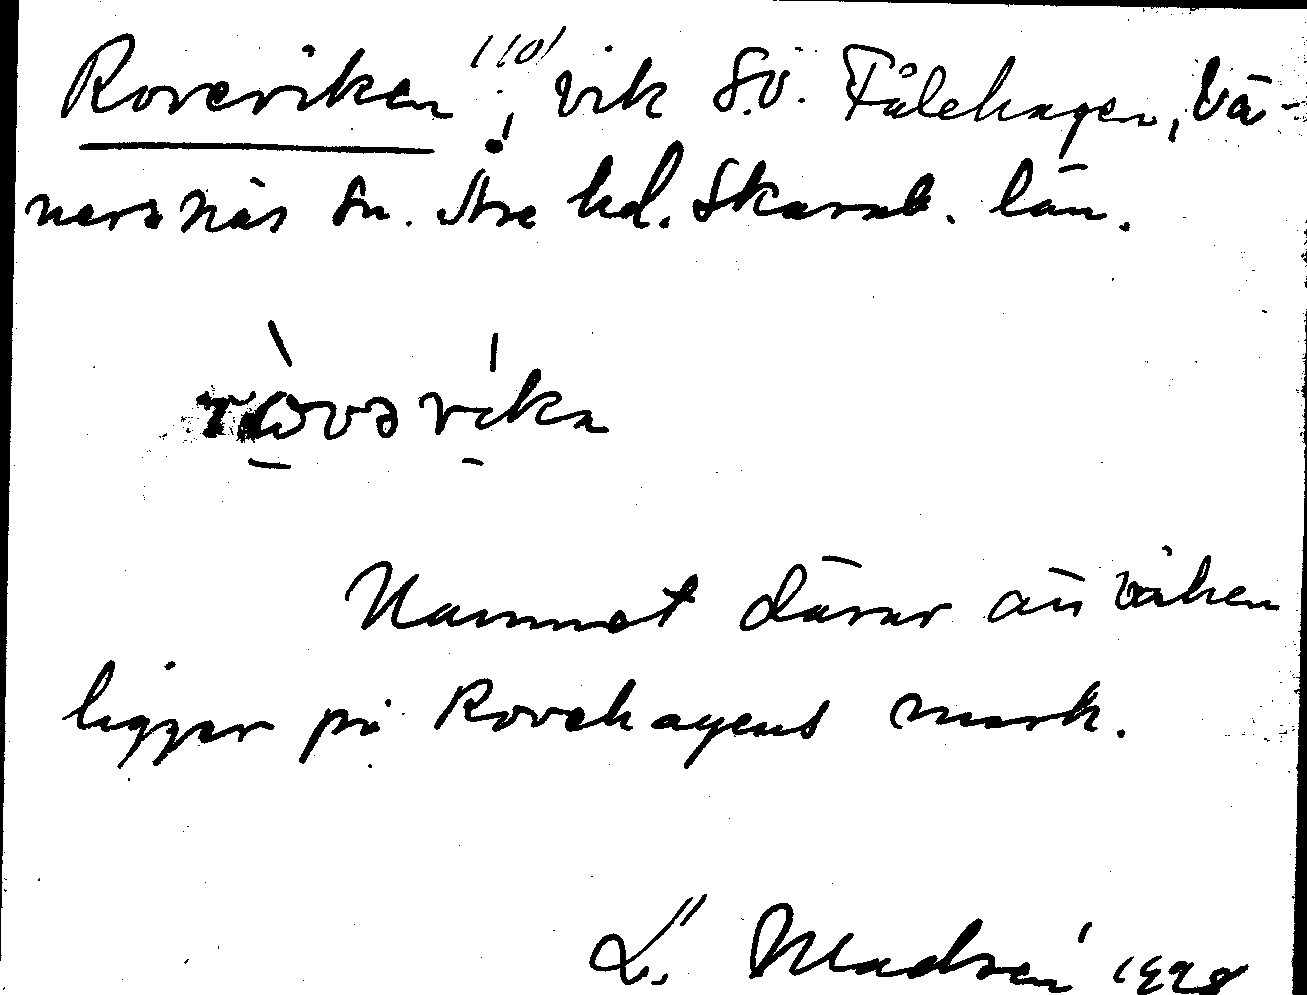 Roveviken (10), vik S.V. Fålehagen, Vä-
nersnäs sn. Åse hd. Skarab. län.
ròvəvíka
Namnet därav att viken
ligger på Rovehagens mark.
L. Madsén 1928